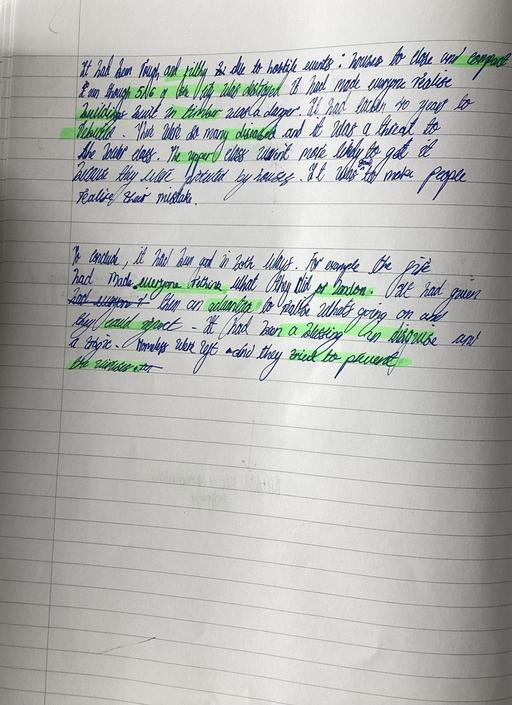 It had been Rough and filthy due to horrible events : houses to close and compact
Even though 5/6 of the city was destroyed it had made everyone realise
buildings built in timber was a danger. It had taken 10 years to
rebuild. There were so many diseases and it was a threat to
the lower class. The upper class weren't more likely to get it
because they were protected by houses. It was to make people
realise their mistake.
To conclude, it had been good in both ways. For example the fire
had made everyone rethink what they did to London. It had given
them an advantage to realise what's going on and
they could expect - It had been a blessing in disguise and
a tragic. Homeless were left and they tried to prevent
the